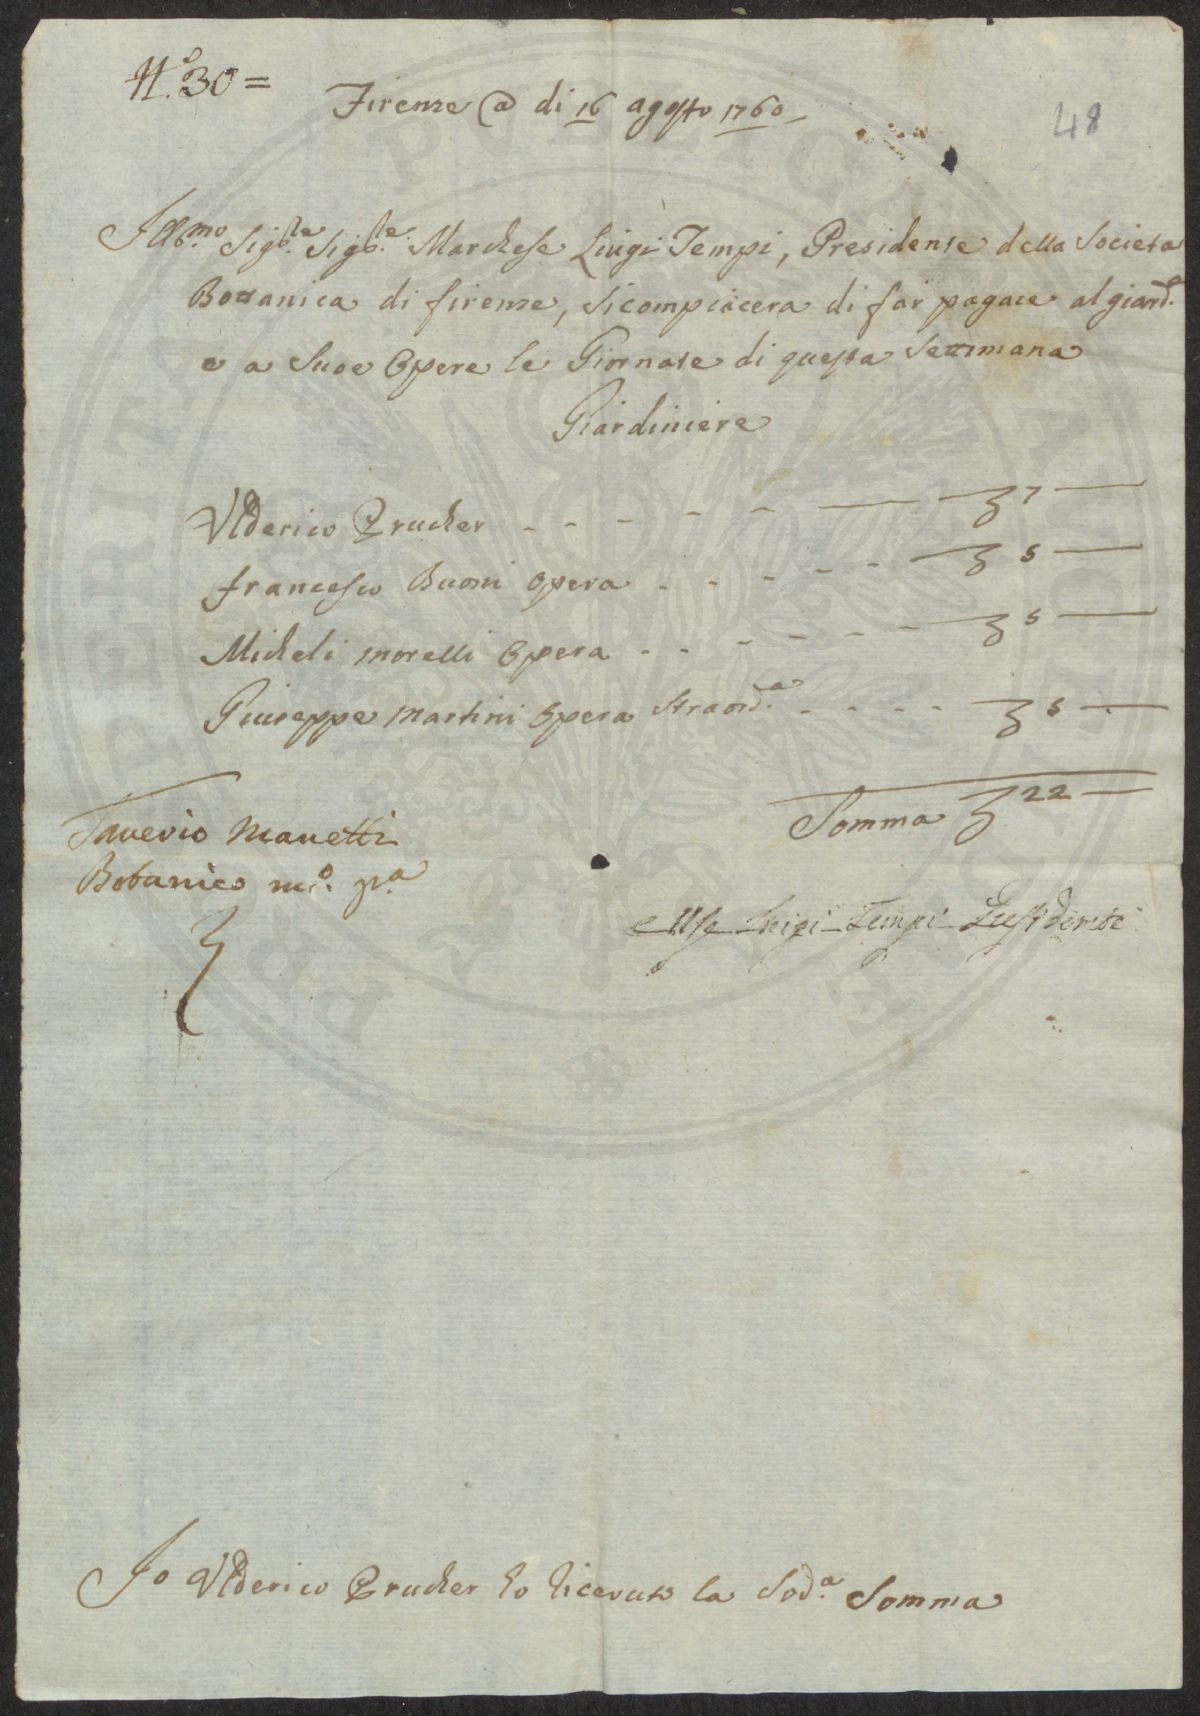 N.o 30 =
Firenze @ di 16 agosto 1760
48
Illmo Sigre Sigre Marchese Luigi Tempi, Presidente della Societa
Bottanica di firenze, si compiacera di far pagare al giard.e
e a Suoe Opere le Giornate di questa Settimana
Giardiniere
Ulderico Prucker - - - - - — 7 —
francesco Buoni opera - - - - - 5 —
Micheli morelli Opera - - - - - 5 —
Giuseppe martini Opera Straord.a - - - - 5 —
Somma 22 —
Saverio Manetti
Botanico m.o p.a
Luigi Tempi Presidente
Io Ulderico Prucker ho ricevuto la Sod.a Somma